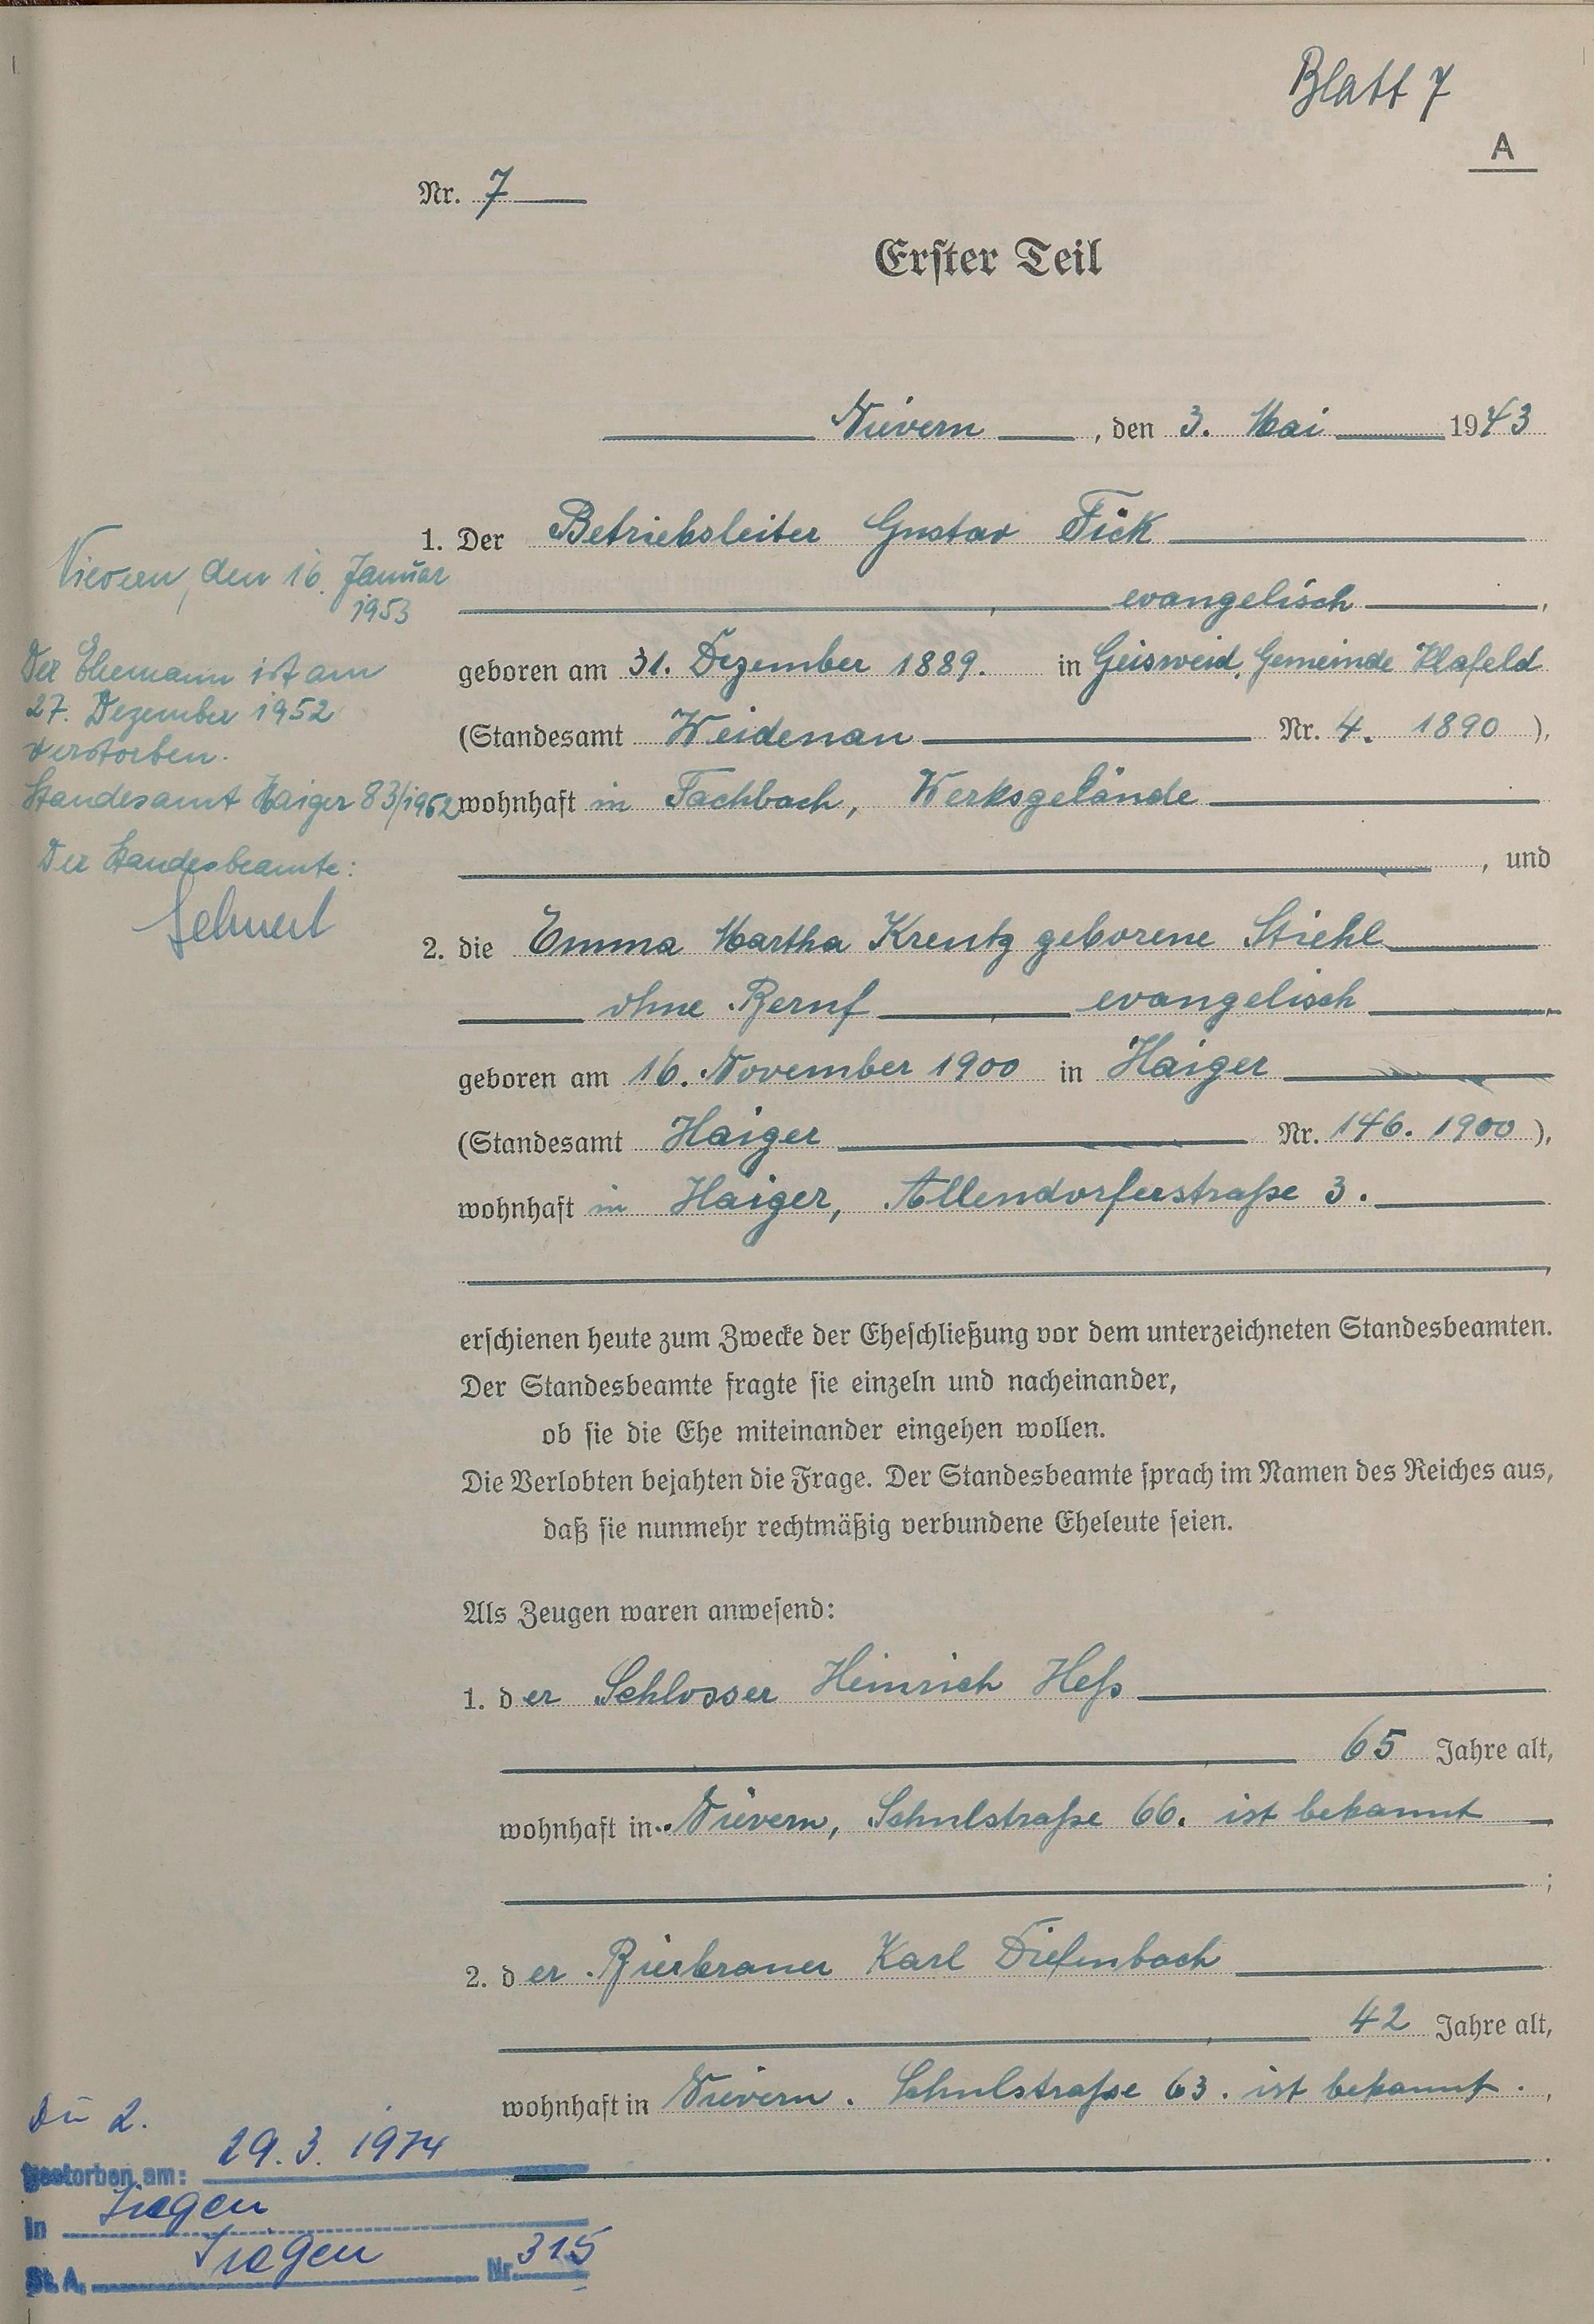 Blatt 7
A
Nr. 7
Erster Teil
Nievern, den 3. Mai 1943
1. Der Betriebsleiter Gustav Fick
evangelisch,
geboren am 31. Dezember 1889. in Geisweid, Gemeinde Klafeld
(Standesamt Weidenau Nr. 4. 1890),
wohnhaft in Fachbach, Werksgelände
, und
2. die Emma Martha Kreutz geborene Stiehl
ohne Beruf evangelisch,
geboren am 16. November 1900 in Haiger
(Standesamt Haiger Nr. 146. 1900),
wohnhaft in Haiger, Allendorferstraße 3.
,
erschienen heute zum Zwecke der Eheschließung vor dem unterzeichneten Standesbeamten.
Der Standesbeamte fragte sie einzeln und nacheinander,
ob sie die Ehe miteinander eingehen wollen.
Die Verlobten bejahten die Frage. Der Standesbeamte sprach im Namen des Reiches aus,
daß sie nunmehr rechtmäßig verbundene Eheleute seien.
Als Zeugen waren anwesend:
1. der Schlosser Heinrich Heß
65 Jahre alt,
wohnhaft in Nievern, Schulstraße 66. ist bekannt
;
2. der Bierbrauer Karl Diefenbach
42 Jahre alt,
wohnhaft in Nievern. Schulstraße 63. ist bekannt.,
.
Nievern, den 16. Januar
1953
Der Ehemann ist am
27. Dezember 1952
verstorben.
Standesamt Haiger 83/1952
Der Standesbeamte:
Zu 2.
gestorben am: 29.3.1974
in Siegen
St. A. Siegen Nr. 315